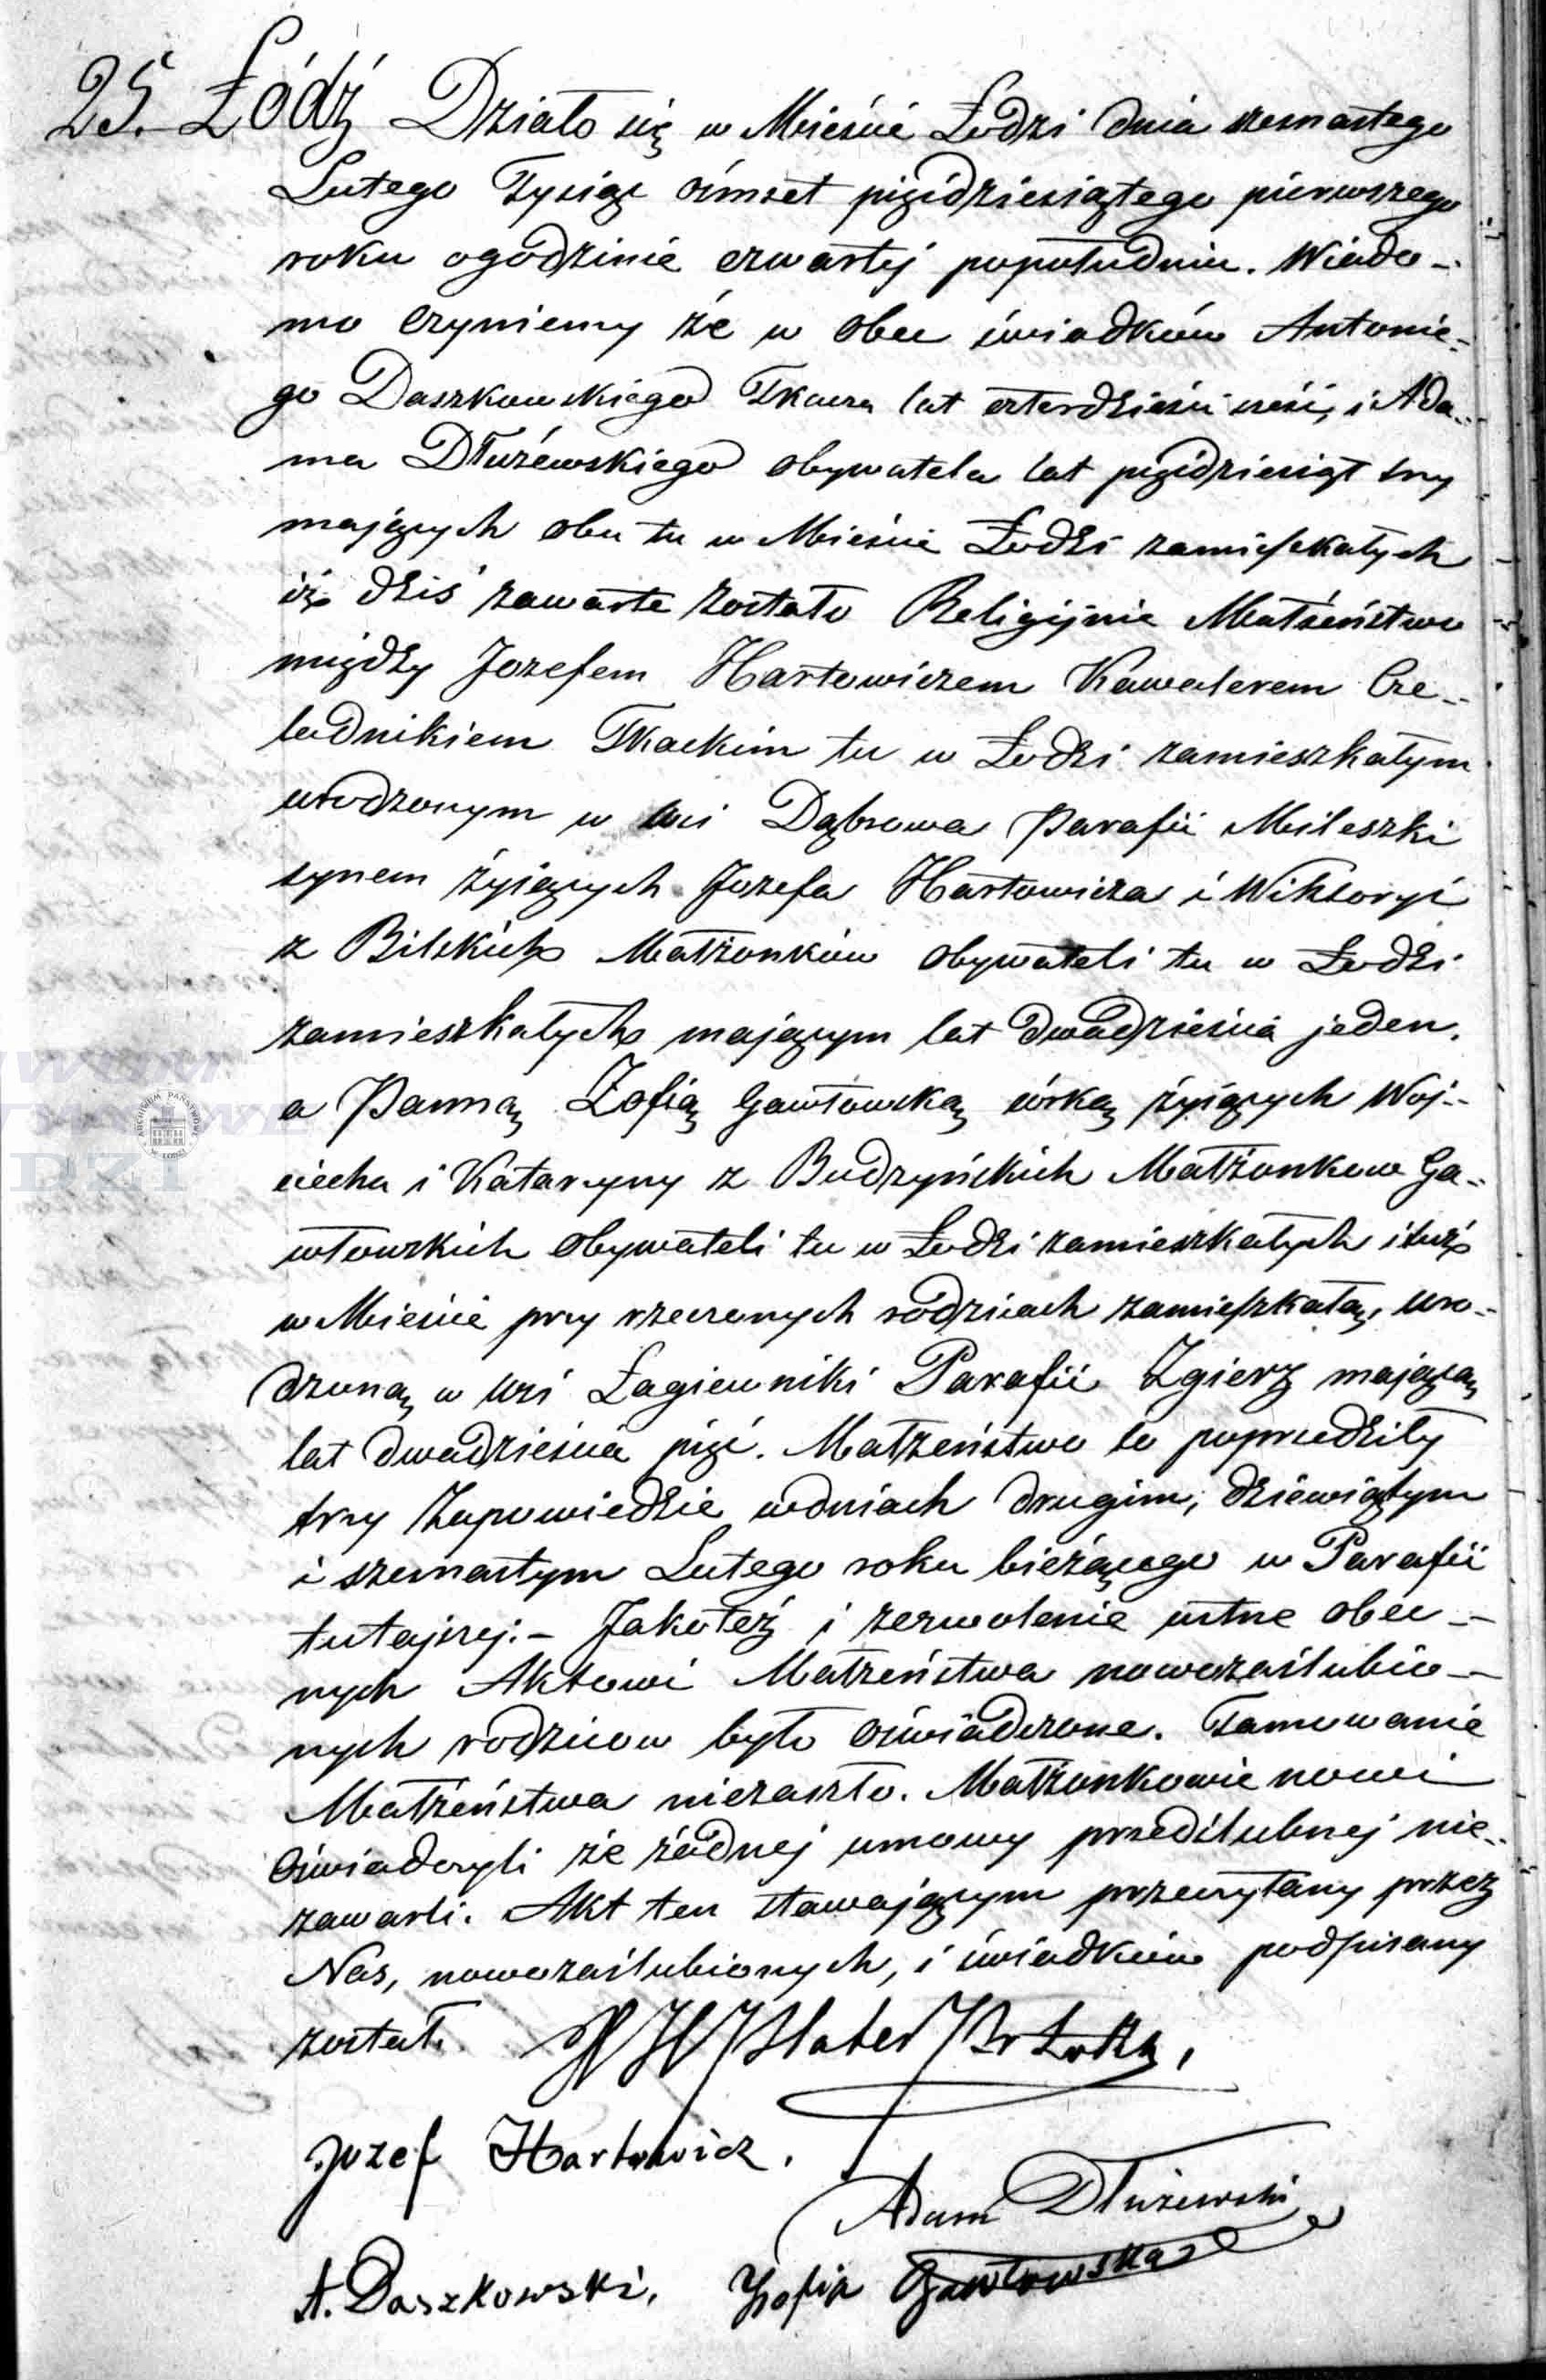 25. Łódź Działo się w Mieście Łodzi dnia szesnastego
Lutego Tysiąc ośmset pięćdziesiątego pierwszego
roku ogodzinie czwartej popołudniu. Wiado-
mo czyniemy że w obec świadków Antonie-
go Daszkowskiego Tkacza lat czterdzieści sześć, i Ada-
ma Dłużewskiego obywatela lat pięćdziesiąt trzy
mających obu tu w Mieście Łodzi zamieszkałych
iż dziś zawarte zostało Religijnie Małżeństwo
między Jozefem Hartowiczem Kawalerem Cze-
ladnikiem Tkackim tu w Łodzi zamieszkałym
urodzonym w wsi Dąbrowa Parafii Mileszki
synem żyiących Jozefa Hartowicza i Wiktoryi
z Bilskich Małżonków obywateli tu w Łodzi
zamieszkałych mającym lat dwadzieścia jeden.
a Panną Zofią Gawłowską córką żyiących Woj-
ciecha i Katarzyny z Budzyńskich Małżonkow Ga-
włowskich obywateli tu w Łodzi zamieszkałych i tuż
w Mieście przy rzeczonych rodzicach zamieszkałą, uro-
dzoną w wsi Łagiewniki Parafii Zgierz mającą
lat dwadzieścia pięć. Małżeństwo to poprzedziły
trzy Zapowiedzie wdniach drugim, dziewiątym
i szesnastym Lutego roku bieżącego w Parafii
tutejszej.- Jakoteż i zezwolenie ustne obec-
nych Aktowi Małżeństwa nowozaślubio-
nych rodzicow było oświadczone. Tamowanie
Małżeństwa niezaszło. Małżonkowie nowi
Oświadczyli że żadnej umowy przedślubnej nie-
zawarli. Akt ten stawającym przeczytany przez
Nas, nowozaślubionych, i świadków podpisany
został.
Jozef Hartowicz.
Adam Dłużewski
A. Daszkowski. Zofia Gawłowska
ARCHIWUM PAŃSTWOWE W ŁODZI